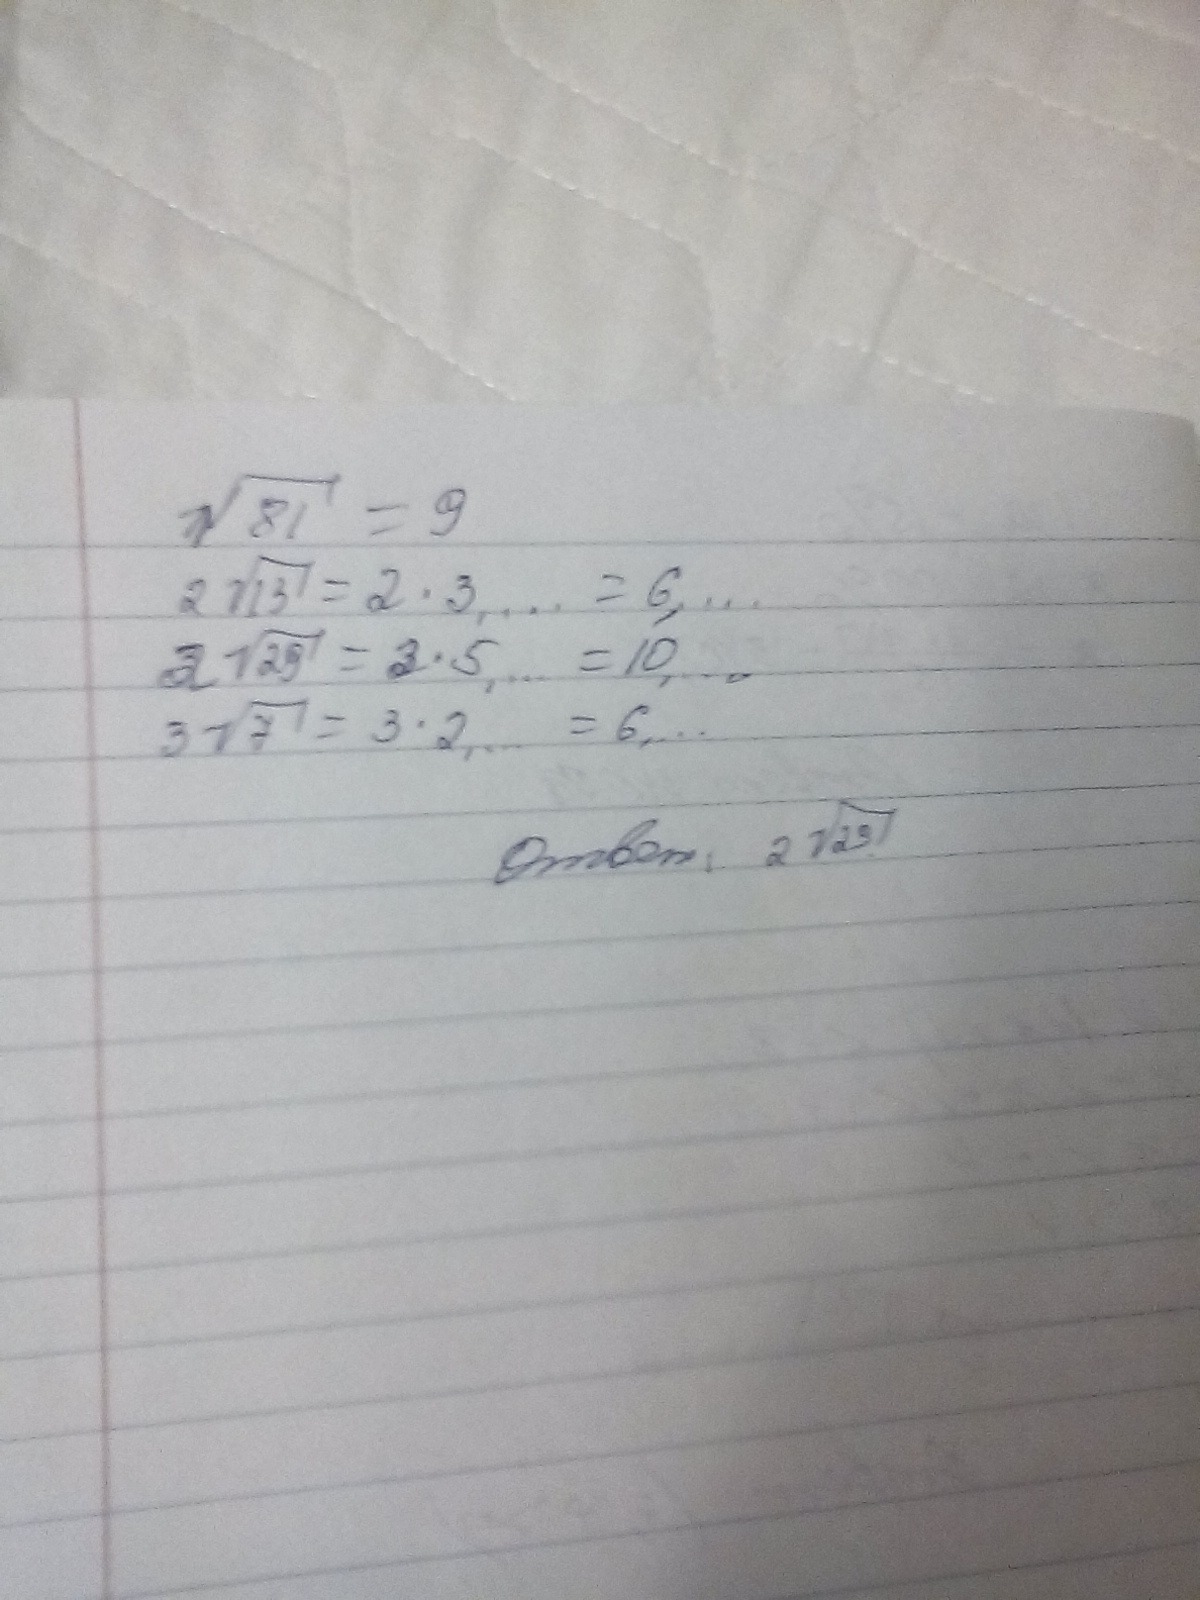 √81 = 9
2√13 = 2·3,.... = 6,...
2√29 = 2·5,... = 10,...
3√7 = 3·2,... = 6,...
Ответ: 2√29